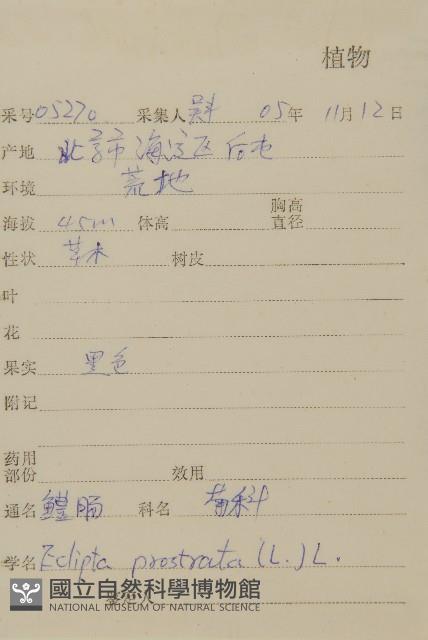 植物
采号 05270 采集人 吴 05年 11月12日
产地 北京市海淀区后屯
环境 荒地
海拔 45m 体高 胸高直径
性状 草本 树皮
叶
花
果实 黑色
附记
药用部份 效用
通名 鳢肠 科名 菊科
学名 Eclipta prostrata (L.) L.
國立自然科學博物館
NATIONAL MUSEUM OF NATURAL SCIENCE